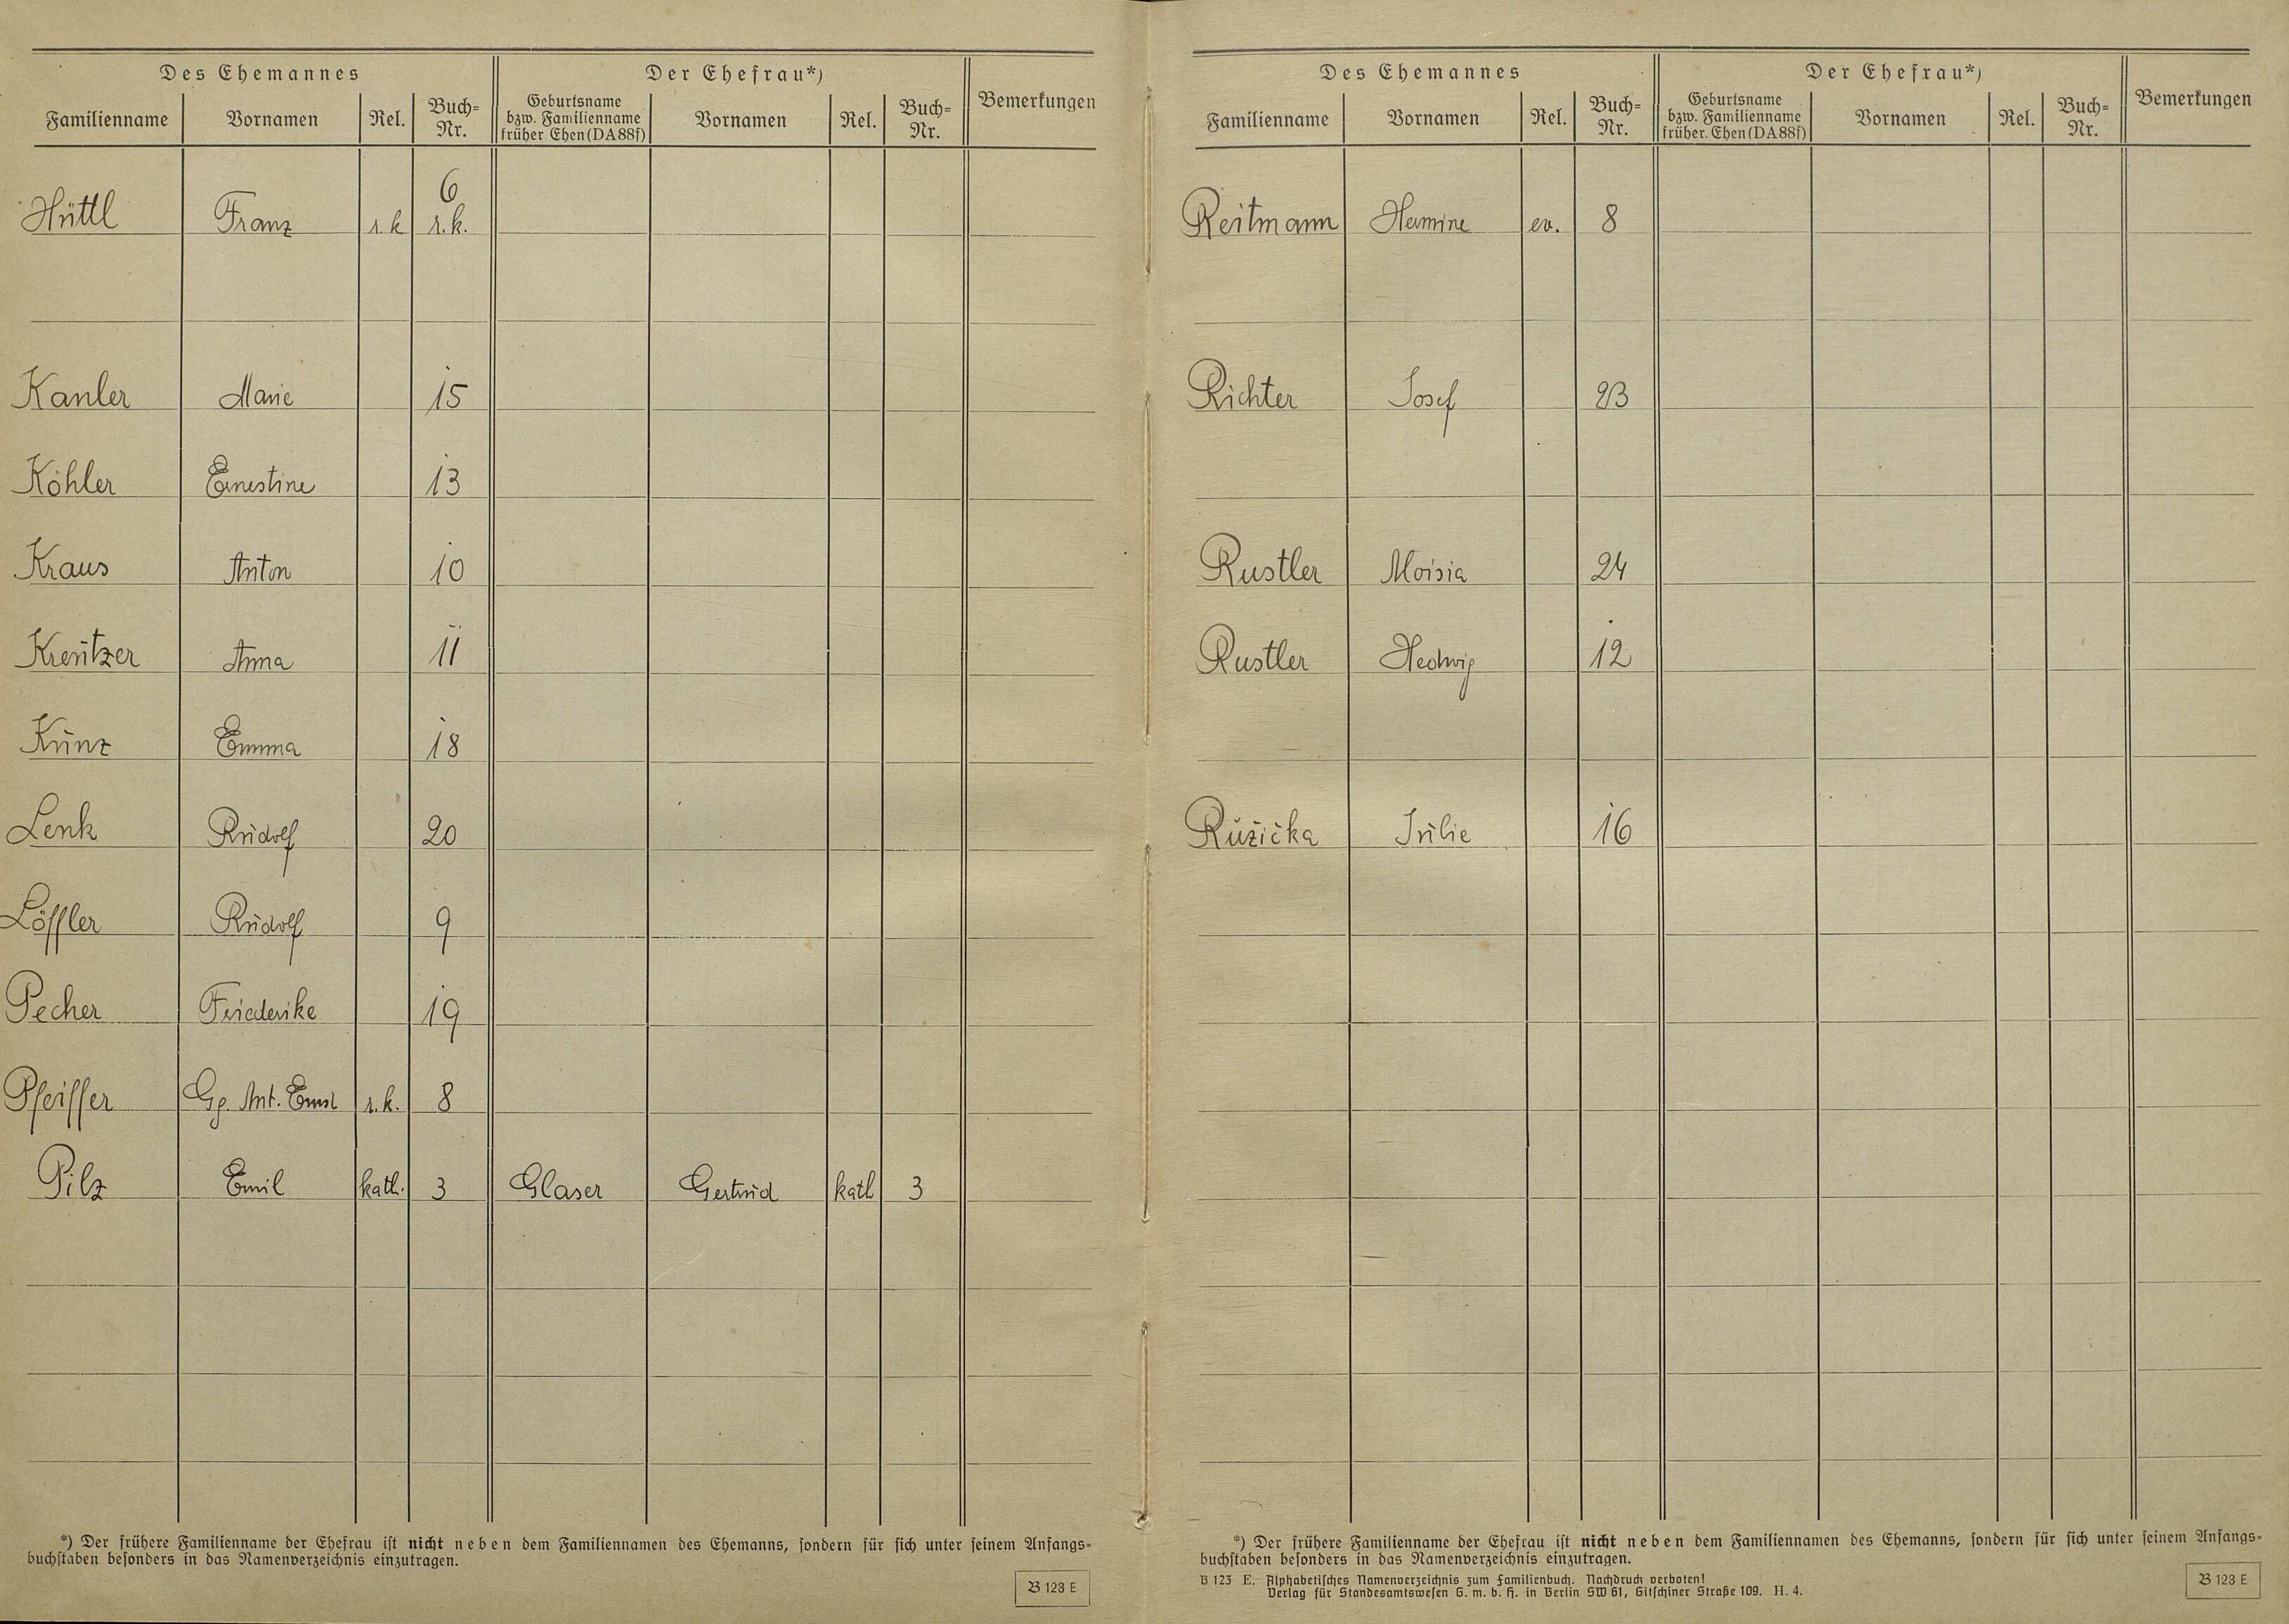 Des Ehemannes Der Ehefrau*) Bemerkungen
Familienname Vornamen Rel. Buch-Nr. Geburtsname bzw. Familienname früher Ehen (DA 88f) Vornamen Rel. Buch-Nr.
6
Hüttl Franz r.k r.k.
Kanler Marie 15
Köhler Ernestine 13
Kraus Anton 10
Kreutzer Anna 11
Kunz Emma 18
Lenk Rudolf 20
Löffler Rudolf 9
Pecher Friederike 19
Pfeiffer Gg. Ant. Ernst r.k. 8
Pilz Emil kath. 3 Glaser Gertrud kath 3
*) Der frühere Familienname der Ehefrau ist nicht neben dem Familiennamen des Ehemanns, sondern für sich unter seinem Anfangs-
buchstaben besonders in das Namenverzeichnis einzutragen.
B 123 E
Des Ehemannes Der Ehefrau*) Bemerkungen
Familienname Vornamen Rel. Buch-Nr. Geburtsname bzw. Familienname früher. Ehen (DA 88f) Vornamen Rel. Buch-Nr.
Reitmann Hermine ev. 8
Richter Josef 23
Rustler Aloisia 24
Rustler Hedwig 12
Růžička Julie 16
*) Der frühere Familienname der Ehefrau ist nicht neben dem Familiennamen des Ehemanns, sondern für sich unter seinem Anfangs-
buchstaben besonders in das Namenverzeichnis einzutragen.
B 123 E. Alphabetisches Namenverzeichnis zum Familienbuch. Nachdruck verboten!
Verlag für Standesamtswesen G. m. b. H. in Berlin SW 61, Gitschiner Straße 109. H. 4.
B 123 E